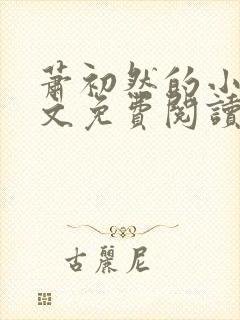 蕭初然的小
文免費閱讀
古麗尼